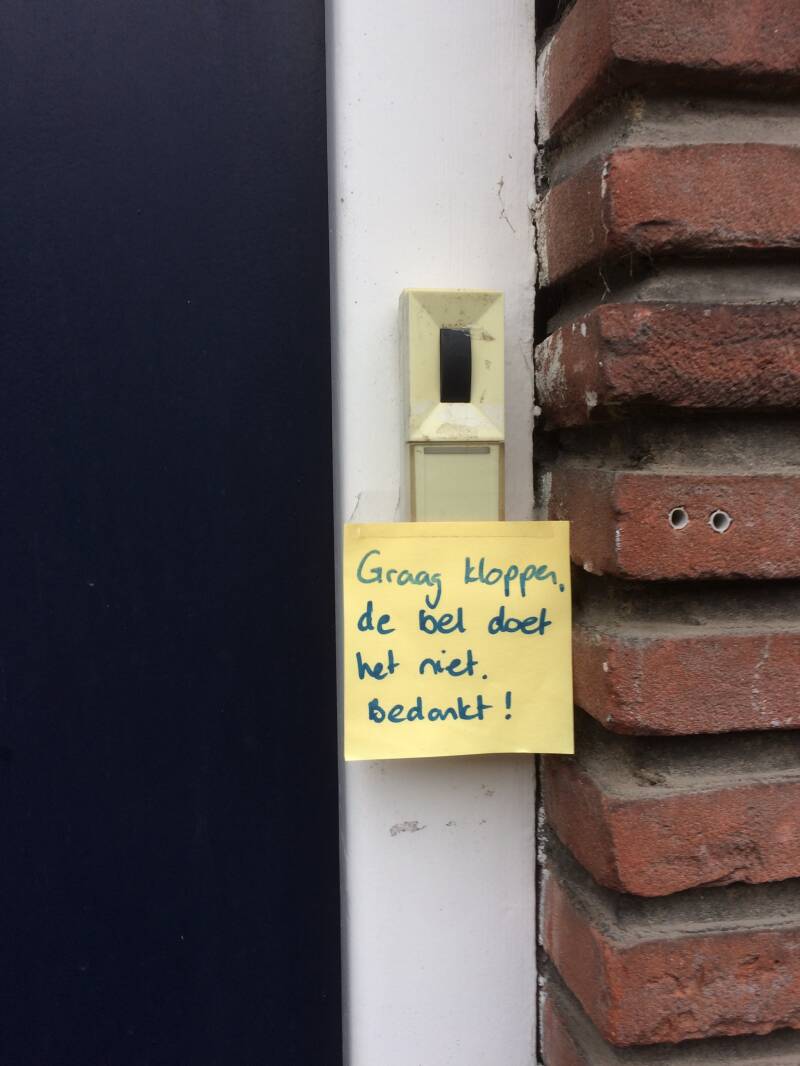 Graag kloppen,
de bel doet
het niet.
Bedankt!